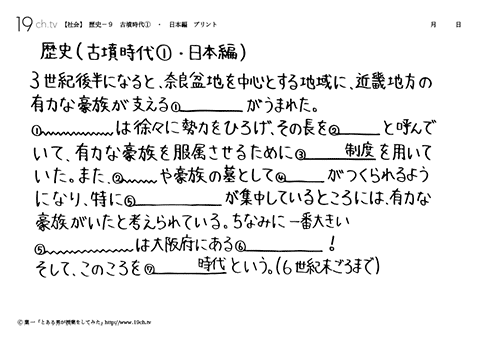 19ch.tv 【社会】 歴史-9 古墳時代① ・ 日本編 プリント 月 日
歴史(古墳時代①・日本編)
3世紀後半になると、奈良盆地を中心とする地域に、近畿地方の
有力な豪族が支える①________がうまれた。
①________は徐々に勢力をひろげ、その長を②________と呼んで
いて、有力な豪族を服属させるために③________制度を用いて
いた。また、②________や豪族の墓として④________がつくられるよう
になり、特に⑤________が集中しているところには、有力な
豪族がいたと考えられている。ちなみに一番大きい
⑤________は大阪府にある⑥________!
そして、このころを⑦________時代という。(6世紀末ごろまで)
© 葉一「とある男が授業をしてみた」http://www.19ch.tv